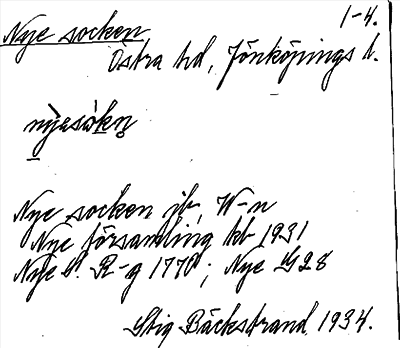 Nye socken 1-4.
Östra hd, Jönköpings l.
nỳesòkn̥
Nye socken jb, W-n
Nye församling kb 1931
Nye s. R-g 1770; Nye G28
Stig Bäckstrand 1934.